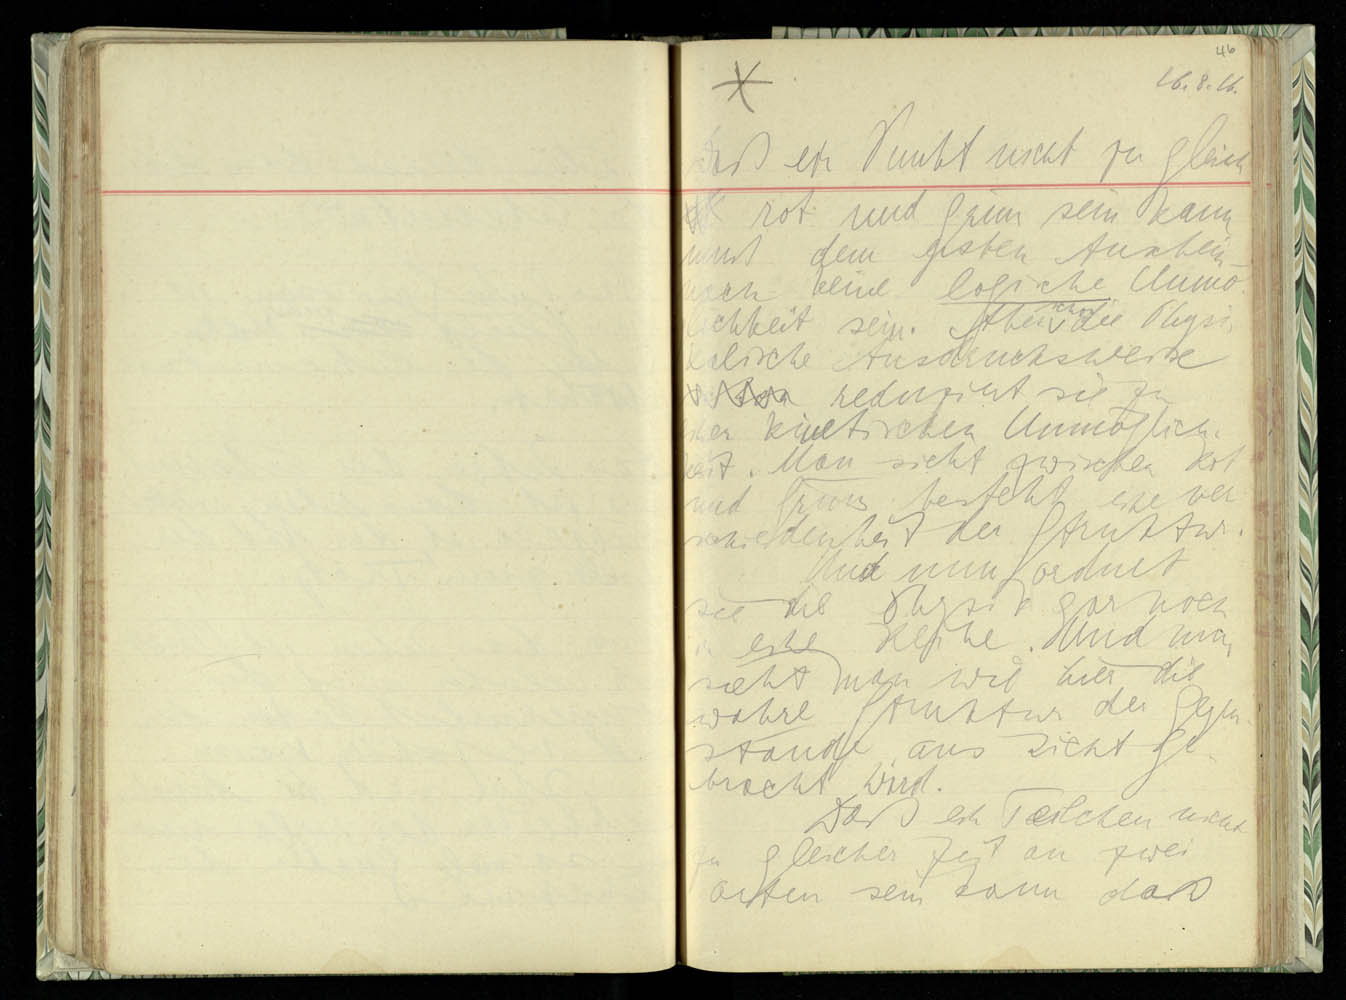 46
16.8.16.
Daß ein Punkt nicht zu gleich
rot und grün sein kann
muß dem ersten Anschein
nach keine logische Unmö-
lichkeit sein. Aber schon die Physi-
kalische Ausdrucksweise
reduziert sie zu
einer kinetischen Unmöglich-
keit. Man sieht zwischen Rot
und Grün besteht eine ver
schiedenheit der Struktur.
Und nun ordnet
sie die Physik gar noch
in eine Reihe. Und nun
sieht man wie hier die
wahre Struktur der Gegen-
stände ans Licht ge
bracht wird.
Daß ein Teilchen nicht
zu gleicher Zeit an zwei
Orten sein kann daß